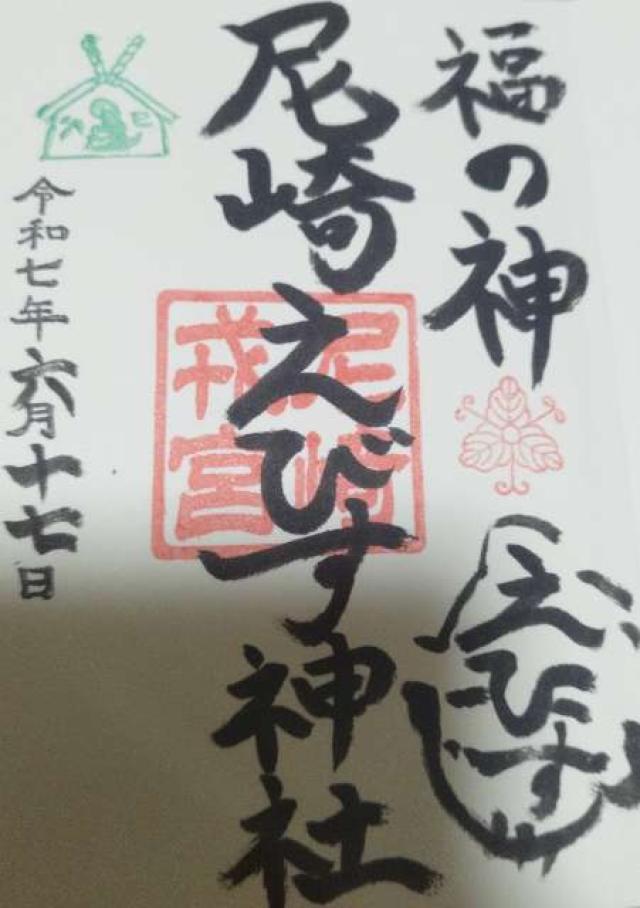 福の神
えびす
尼崎えびす神社
尼崎
戎宮
令和七年六月十七日